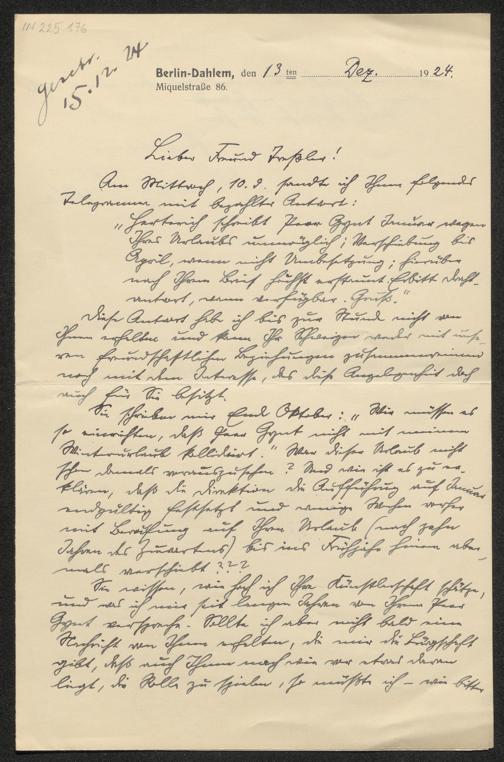 IN 225 176
gesehr.
15.12.24
Berlin-Dahlem, den 13 ten Dez. 1924.
Miquelstraße 86.
Lieber Freund Treßler!
Am Mittwoch, 10. d. sandte ich Ihnen folgendes
Telegramm mit bezahlter Antwort:
„Herterich schreibt Peer Gynt Januar wegen
Ihres Urlaubs unmöglich; Verschiebung bis
April, wenn nicht Umbesetzung; hierüber
nach Ihrem Brief höchst erstaunt. Erbitte Draht-
antwort, wann verfügbar. Gruß."
Diese Antwort hab ich bis zur Stunde nicht von
Ihnen erhalten und kann Ihr Schweigen weder mit unse-
ren freundschaftlichen Beziehungen zusammenreimen
noch mit dem Interesse, das diese Angelegenheit doch
auch für Sie besitzt.
Sie schrieben mir Ende Oktober: „Wir müssen es
so einrichten, daß Peer Gynt nicht mit meinem
Winterurlaub kollidiert." War dieser Urlaub nicht
schon damals vorauszusehen? Und wie ist es zu er-
klären, daß die Direktion die Aufführung auf Januar
endgültig festsetzt und wenige Wochen vorher
mit Berufung auf Ihren Urlaub (nach zehn
Jahren des Zuwartens) bis ins Frühjahr hinein aber-
mals verschiebt???
Sie wissen, wie hoch ich Ihre Künstlerschaft schätze,
und was ich mir seit langen Jahren von Ihrem Peer
Gynt verspreche. Sollte ich aber nicht bald eine
Nachricht von Ihnen erhalten, die mir die Bürgschaft
gibt, daß auch Ihnen nach wie vor etwas daran
liegt, die Rolle zu spielen, so müßte ich – wie bitter